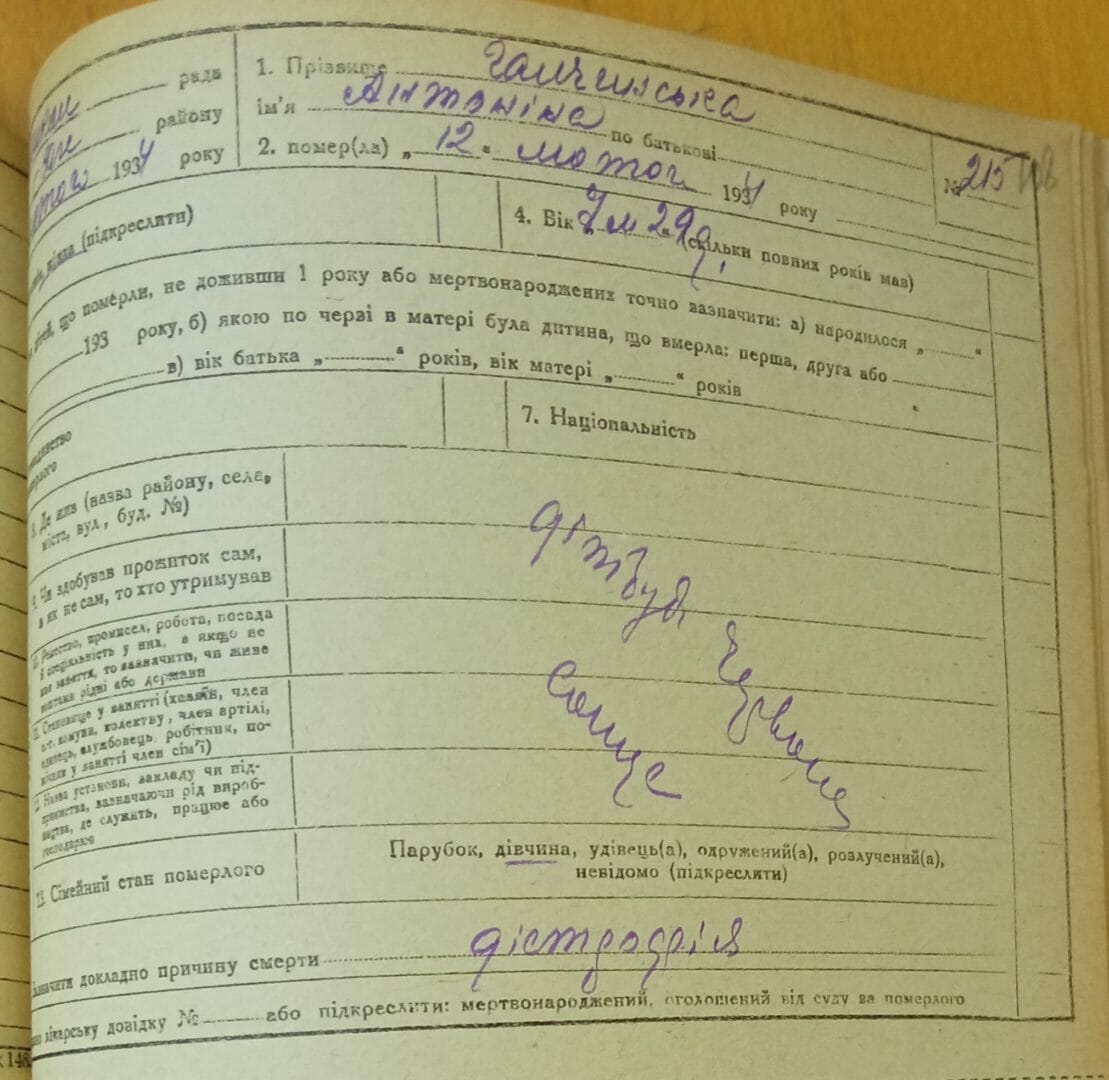 рада
району
лютого 1934 року
1. Прізвище Галчинська
ім'я Антоніна по батькові
2. помер(ла) „ 12 “ лютого 1934 року
№ 215
108
жінка (підкреслити)
4. Вік „ 7 м 29 д. “ (скільки повних років мав)
дітей, що померли, не доживши 1 року або мертвонароджених точно вазначити: а) народилося „ “
193 року, б) якою по черзі в матері була дитина, що вмерла: перша, друга або
в) вік батька „ “ років, вік матері „ “ років
7. Національність
8. Де жив (назва району, села, міста, вул., буд. №)
9. Чи здобував прожиток сам, а як не сам, то хто утримував
10. Ремество, промисел, робота, посада і спеціяльність у них, а якщо не має заняття, то зазначити, чи живе коштами рідні або держави
11. Становище у занятті (хазяїн, член с.-г. комуни, колективу, член артілі, одинець, службовець, робітник, помічник у занятті член сім'ї)
12. Назва установи, закладу чи підприємства, зазначаючи рід виробництва, де служить, працює або господарює
дітбуд Червоне
сонце
13. Сімейний стан померлого
Парубок, дівчина, удівець(а), одружений(а), розлучений(а),
невідомо (підкреслити)
Зазначити докладно причину смерти дістрофія
лікарську довідку № або підкреслити: мертвонароджений, оголошений від суду за померлого
148